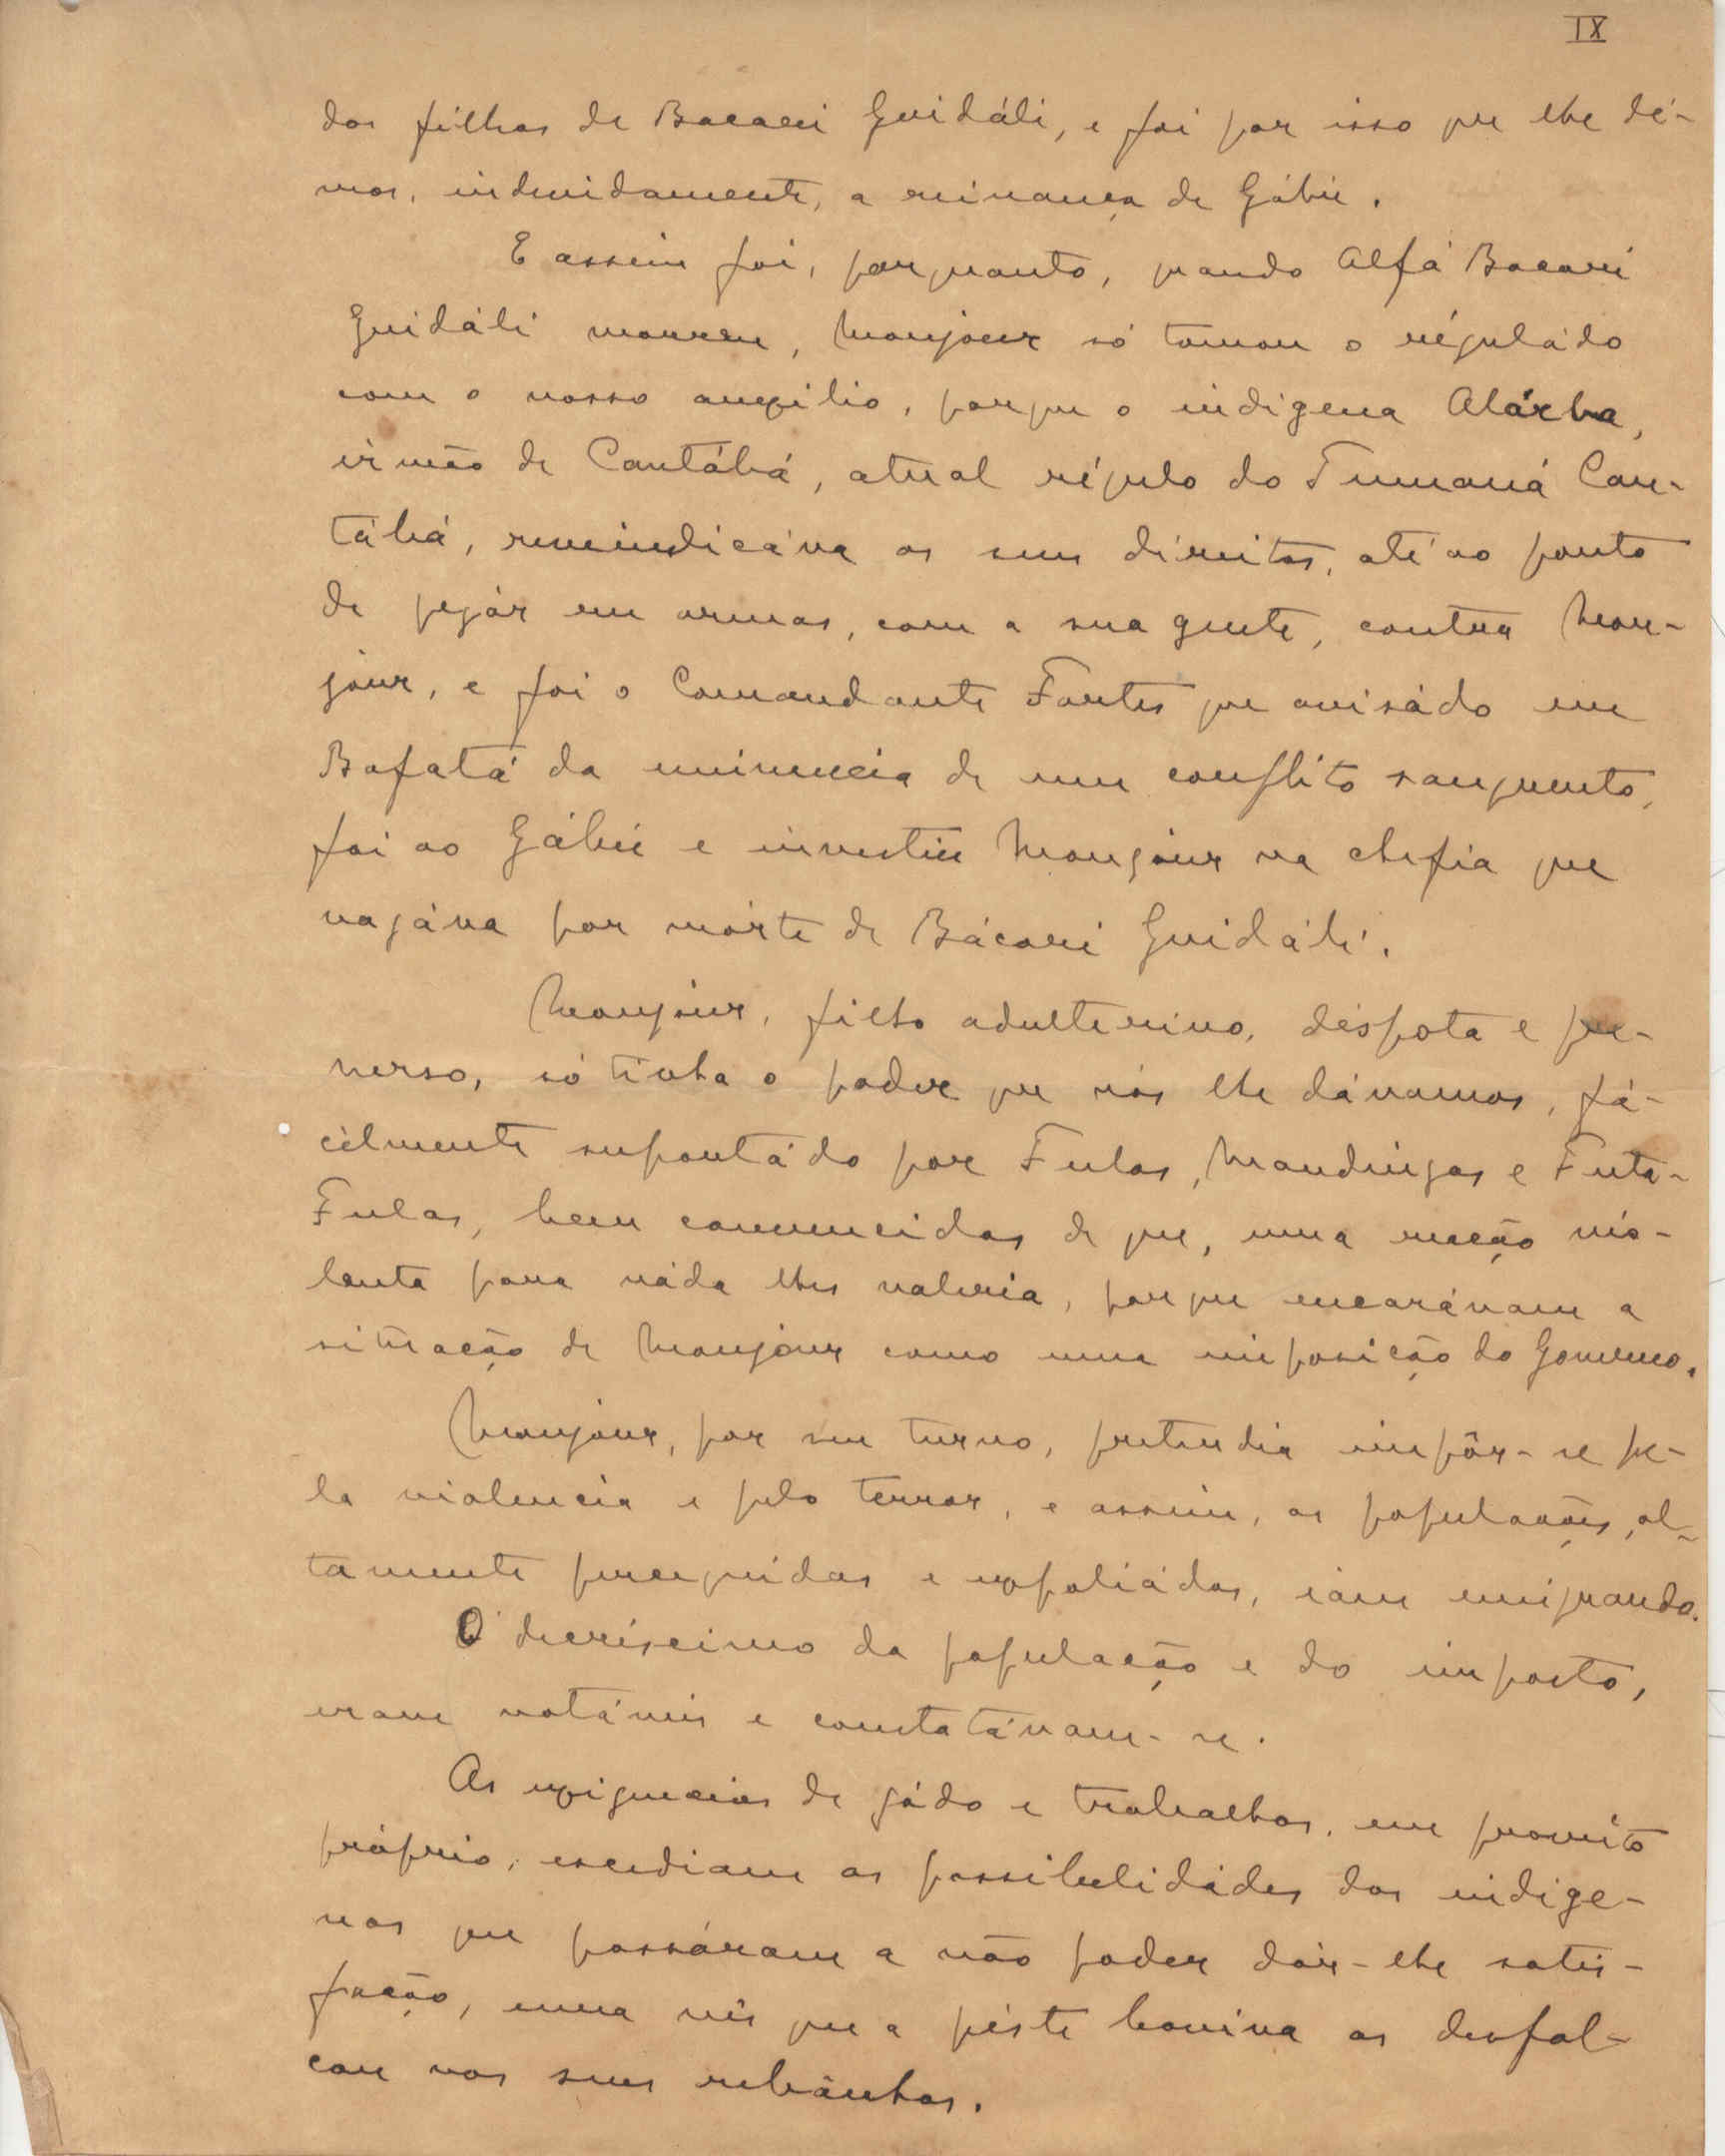 IX
dos filhos de Bacari Guidáli, e foi por isso que lhe dé-
mos, indevidamente, a reinança de Gábú.
E assim foi, porquanto, quando Alfá Bacari
Guidáli morreu, Monjour só tomou o réguládo
com o nosso auxilio, porque o indigena Alárba,
irmão de Cantábá, atual régulo do Tumaná Can-
tábá, reveindicáva os seus direitos, até ao ponto
de pegár em armas, com a sua gente, contra Mon-
jour, e foi o Comandante Fortes que avisádo em
Bafatá da iminencia de um conflito sanguento,
foi ao Gábú e investiu Monjour na chefia que
vagáva por mórte de Bácari Guidáli.
Monjour, filho adulterino, déspota e per-
verso, só tinha o poder que nós lhe dávamos, fá-
cilmente suportádo por Fulas, Mandingas e Futa-
Fulas, bem convencidos de que, uma reação vio-
lenta para náda lhes valeria, porque encarávam a
situação de Monjour como uma imposição do Governo.
Monjour, por seu turno, pretendia impôr-se pe-
la violencia e pelo terror, e assim, as populações, al-
tamente perseguidas e expoliádas, iam emigrando.
O decríscimo da população e do imposto,
eram notáveis e constatávam-se.
As exigencias de gádo e trabalhos, em proveito
próprio, excediam as possibelidádes dos indige-
nas que passáram a não poder dár-lhe satis-
fação, uma vês que a péste bovina os desfal-
cou nos seus rebânhos.